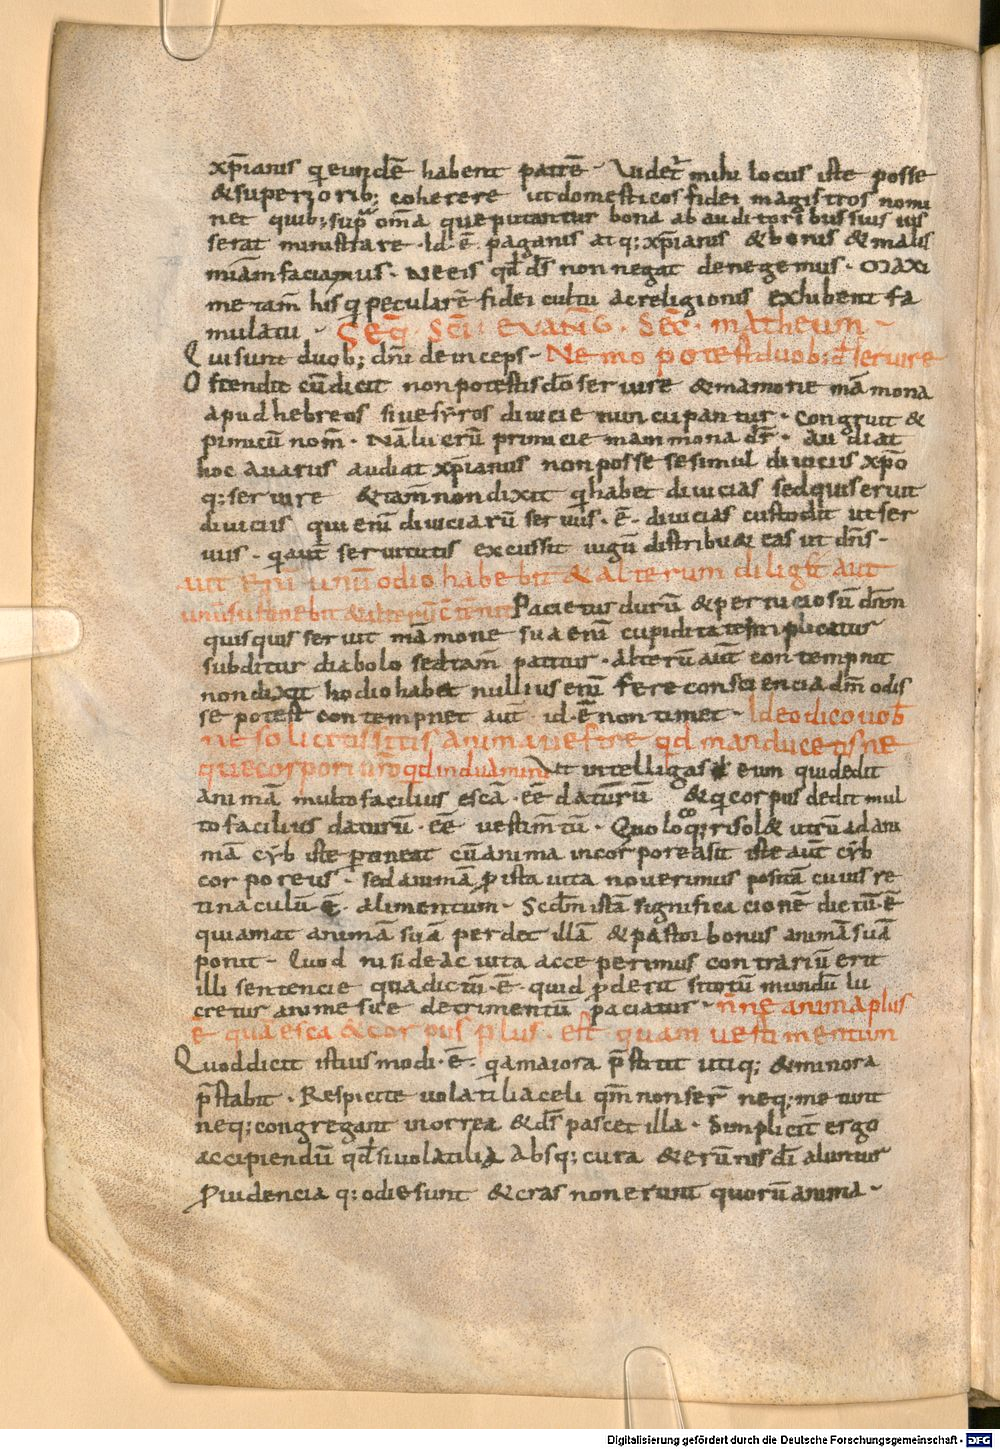 xp̄ianis q̄ eundē habent patrē · Uidet᷑ mihi locus iste posse
& superiorib; coherere ut domesticos fidei magistros nomi
net quib; sup̄ om̄a que putantur bona ab auditoribus suis iuſ
serat ministrare · Id · ē · paganis atq; xp̄ianis & bonis & malis
miam̄ faciamus · Ne eis qd̄ dſ̄ non negat denegemus · Maxi
me tam̄ his q̄ peculiarē fidei cultu ac religionis exhibent fa
mulatu · Seq̄ · Sc̄i · evanḡ · Sec̄ · matheum ·
Qui sunt duob; dn̄i deinceps · Nemo potest duob; d̄ servire
Ostendit cū dicit non potestis dō servire & mamone mā mona
apud hebreos sive syros divicie nuncupantur · Congruit &
punicū nom̄ · Nā lucrū punicie mammona dr̄ · Audiat
hoc avarus audiat xp̄ianus non posse se simul diviciis xp̄o
q; servire & tam̄ non dixit q̄ habet divicias sed qui servit
diviciis qui enī diviciarū servus · ē · divicias custodit ut ser
vus · q̄ aut̄ servitutis excussit iugū distribu& eas ut dn̄s ·
aut enī unū odio habebit & alterum diliget aut
unū sustinebit & alterū c̄tēnet Pacietur durū & perniciosū dn̄m
quisquis servit māmone sua enī cupiditate inplicatus
subditur diabolo sed tam̄ patitur · alterū aut̄ contempnit
non dixit hodio habet nullius enī fere consciencia dm̄ odis
se potest contempnet aut̄ · id · ē non timet · Ideo dico vob̄
ne solicti sitis anima vestre qd manducetis ne
que corpori vr̄o qd induamini Ut intelligas eum qui dedit
animā multo facilius escā · eē daturū & q̄ corpus dedit mul
to facilius daturū · eē vestim̄tū · Quo loq; risol& utrū ad ani
mā cyb iste ptineat cū anima incorporea sit iste aut̄ cyb
corporeus · sed animā ꝓ ista vita noverimus positā cuius re
tinaculū · ē · alimentum · Scd̄m istā significacionē dictū · ē
qui amat animā suā perdet illā & pastor bonus animā suā
ponit · Quod nisi de ac vita acceperimus contrariū erit
illi sentencie qua dictū · ē · quid ꝓderit si totū mundū lu
cretur anime sue detrimentū paciatur · n̄ne anima plus
ē qua esca & corpus plus · est quam vestimentum
Quod dicit istius modi · ē · q̄a maiora p̄stitit utiq; & minora
p̄stabit · Respicite volatilia celi qm̄ non ser̄ neq; metunt
neq; congregant in orrea & dſ̄ pascet illa · Simplicit̄ ergo
accipiendū qd̄ si volatilia absq; cura & erūnis dī aluntur
ꝓvidencia q; odie sunt & cras non erunt quorū anima ·
Digitalisierung gefördert durch die Deutsche Forschungsgemeinschaft - DFG